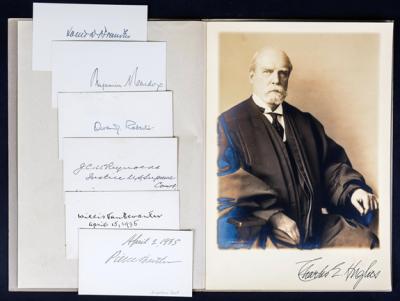 Louis D. Brandeis
Benjamin N Cardozo
Owen J. Roberts
J C McReynolds
Justice U.S. Supreme
Court
Willis Van Devanter
April 15, 1935
April 2, 1935
Pierce Butler
Charles E Hughes